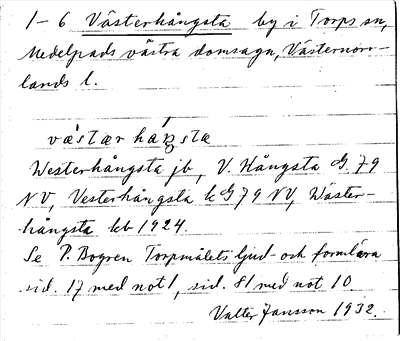 1-6 Västerhångsta by i Torps sn,
Medelpads västra domsaga, Västernorr-
lands l.
væ̀stærháŋsta
Westerhångsta jb, V. Hångsta G. 79
NV, Vesterhångsta k G 79 NV, Wäster-
hångsta kb 1924.
Se P. Bogren Torpmålets ljud- och formlära
sid. 17 med not 1, sid. 81 med not 10
Valter Jansson 1932.